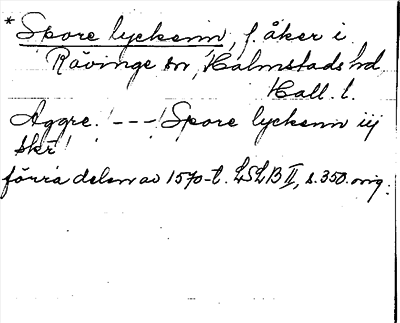 * Spore lyckenn, f. åker i
Rävinge sn, Halmstads hd,
Hall. l.
Aggre. ! - - -! Spore lyckenn iij
skr!
förra delen av 1570-t. LSLB II, s. 350. orig.